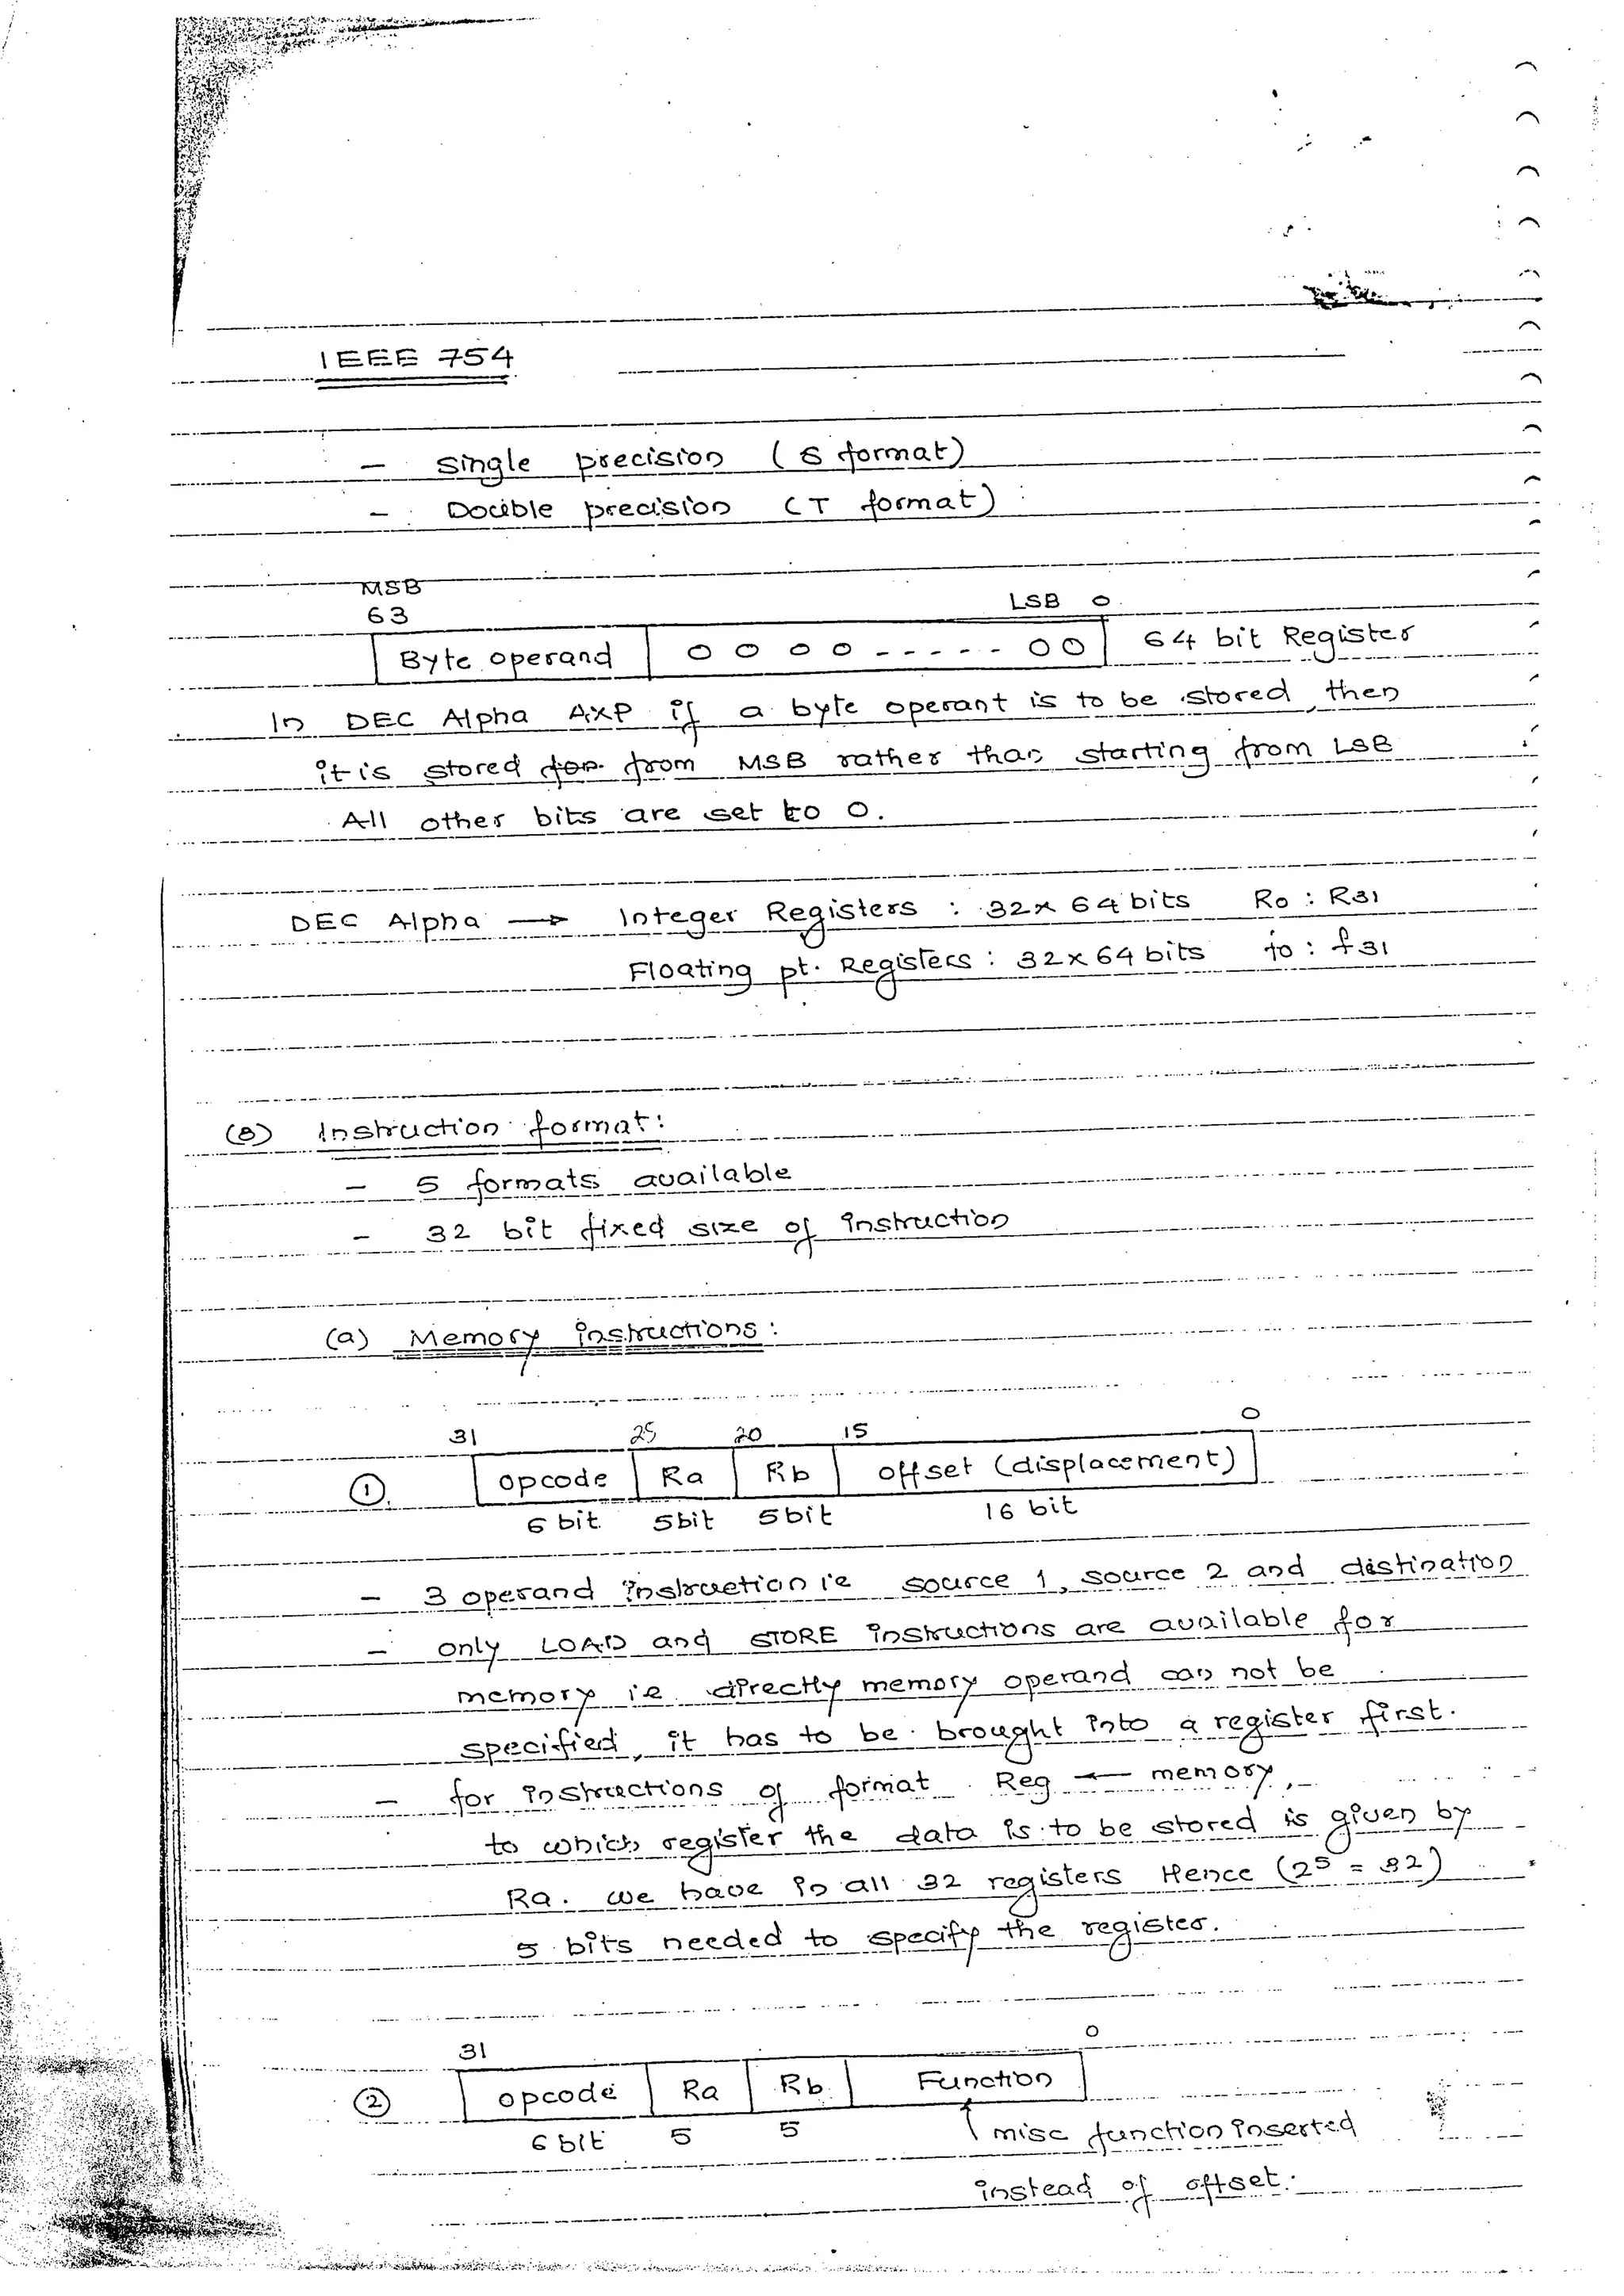 IEEE 754
- Single precision (S format)
- Double precision (T format)
MSB
63 LSB 0
Byte operand 0 0 0 0 - - - - - 0 0 64 bit Register
In DEC Alpha AXP if a byte operant is to be stored, then
it is stored for from MSB rather than starting from LSB
All other bits are set to 0.
DEC Alpha → Integer Registers : 32 x 64 bits R0 : R31
Floating pt. Registers : 32 x 64 bits f0 : f31
(8) Instruction format :
- 5 formats available
- 32 bit fixed size of instruction
(a) Memory instructions :
31 25 20 15 0
① opcode Ra Rb offset (displacement)
6 bit 5bit 5bit 16 bit
- 3 operand instruction i.e source 1, source 2 and distination
- only LOAD and STORE instructions are available for
memory i.e directly memory operand can not be
specified, it has to be brought into a register first.
- for instructions of format Reg ← memory,
to which register the data is to be stored is given by
Ra. we have in all 32 registers Hence (2⁵ = 32)
5 bits needed to specify the register.
31 0
② opcode Ra Rb Function
6 bit 5 5 misc function inserted
instead of offset.